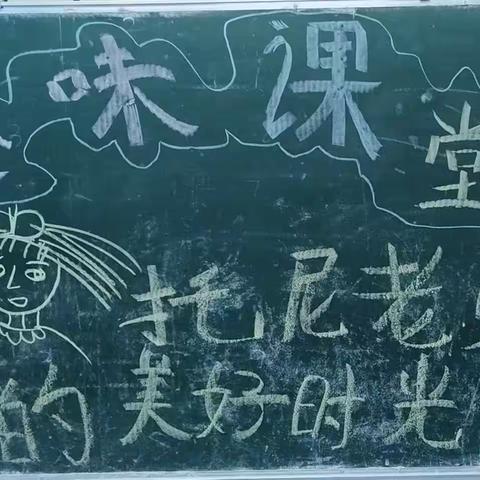 味课堂
托尼老
的美好时光